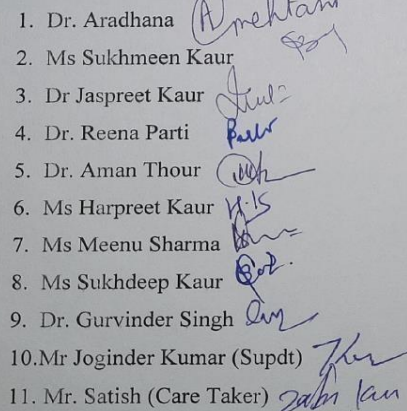 1. Dr. Aradhana Amehtani
2. Ms Sukhmeen Kaur
3. Dr Jaspreet Kaur
4. Dr. Reena Parti
5. Dr. Aman Thour
6. Ms Harpreet Kaur
7. Ms Meenu Sharma
8. Ms Sukhdeep Kaur
9. Dr. Gurvinder Singh
10.Mr Joginder Kumar (Supdt)
11. Mr. Satish (Care Taker)